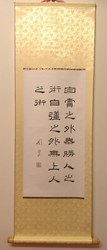 自責之外無勝人之
術自強之外無上人
之術